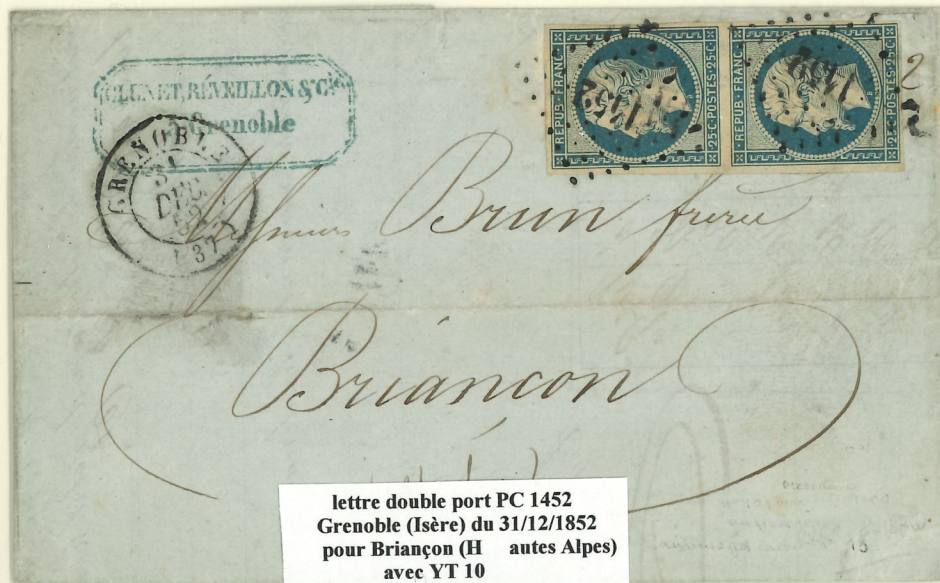 CLUNET, RÉVEILLON & Cie
à Grenoble
GRENOBLE
31
DEC.
52
(37)
REPUB-FRANC-
25·C-POSTES-25·C
1452
REPUB-FRANC-
25·C-POSTES-25·C
1452
2
2
Messieurs Brun frères
Briançon
lettre double port PC 1452
Grenoble (Isère) du 31/12/1852
pour Briançon (H autes Alpes)
avec YT 10